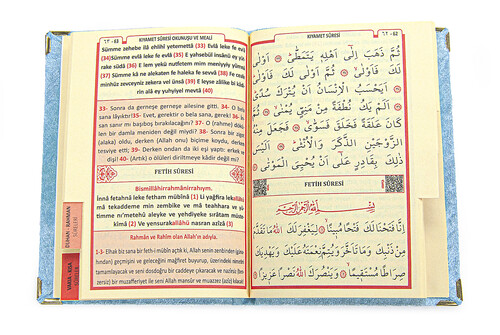 KIYAMET SÛRESİ OKUNUŞU ve MEALİ
Sümme zehebe ilâ ehlihî yetemettâ (33) Evlâ leke fe evlâ
(34) Sümme evlâ leke fe evlâ (35) E yahsebül insânü en yüt-
rake südâ (36) E lem yekü nutfetem mim meniyyiy yümnâ
(37) Sümme kâ ne alekaten fe haleka fe sevvâ (38) Fe ceale
minhüz zevceyniz zekera vel ünsâ (39) E leyse zâlike bi kâdi-
rin alâ ey yuhyiyel mevtâ (40)
33- Sonra da gerneşe gerneşe ailesine gitti. 34- O belâ
sana lâyıktır! 35- Evet, gerektir o bela sana, gerek! 36- İn-
san sanır mı başıboş bırakılacağını? 37- O (rahme) dökü-
len bir damla meniden değil miydi? 38- Sonra bir
(alaka) oldu, derken (Allah onu) biçime koydu, derken
tesviye etti; 39- Derken ondan da iki eşi yaptı: erkek ve
dişi! 40- (Artık) o ölüleri diriltmeye kâdir değil mi?
FETİH SÛRESİ
Bismillâhirrahmânirrahıym.
İnnâ fetahnâ leke fetham mübînâ (1) Li yağfira lekellâhü
mâ tekaddeme min zembike ve mâ teahhara ve yü-
timme ni'metehû aleyke ve yehdiyeke sırâtam müste-
kîmâ (2) Ve yensurakellâhü nasran azîzâ (3)
Rahmân ve Rahîm olan Allah'ın adıyla.
1-3- Elhak biz sana bir feth-i mübîn açtık ki, Allah senin zenbinden (günahından)
geçmişini ve geleceğini mağfiret buyurup, üzerindeki nimetini
tamamlayacak ve seni dosdoğru bir caddeye çıkaracak ve nazîrsiz (ben-
zersiz) bir muzafferiyet ile seni Allah mansûr ve muazzez (azîz) kılacak
DUHAN RAHMAN
SÛRELERİ
VAKIA
KIYAMET SÛRESİ
ثُمَّ ذَهَبَ اِلٰٓى اَهْلِه۪ يَتَمَطّٰىۜ ﴿٣٣﴾ اَوْلٰى
لَكَ فَاَوْلٰىۙ ﴿٣٤﴾ ثُمَّ اَوْلٰى لَكَ فَاَوْلٰىۜ ﴿٣٥﴾
اَيَحْسَبُ الْاِنْسَانُ اَنْ يُتْرَكَ سُدًىۜ
﴿٣٦﴾ اَلَمْ يَكُ نُطْفَةً مِنْ مَنِيٍّ يُمْنٰىۙ ﴿٣٧﴾ ثُمَّ
كَانَ عَلَقَةً فَخَلَقَ فَسَوّٰىۙ ﴿٣٨﴾ فَجَعَلَ مِنْهُ
الزَّوْجَيْنِ الذَّكَرَ وَالْاُنْثٰىۜ ﴿٣٩﴾ اَلَيْسَ
ذٰلِكَ بِقَادِرٍ عَلٰٓى اَنْ يُحْيِيَ الْمَوْتٰى ﴿٤٠﴾
FETİH SÛRESİ
بِسْمِ اللّٰهِ الرَّحْمٰنِ الرَّح۪يمِ
اِنَّا فَتَحْنَا لَكَ فَتْحًا مُب۪ينًاۙ ﴿١﴾ لِيَغْفِرَ لَكَ اللّٰهُ مَا تَقَدَّمَ
مِنْ ذَنْبِكَ وَمَا تَاَخَّرَ وَيُتِمَّ نِعْمَتَهُ عَلَيْكَ وَيَهْدِيَكَ
صِرَاطًا مُسْتَق۪يمًاۙ ﴿٢﴾ وَيَنْصُرَكَ اللّٰهُ نَصْرًا عَز۪يزًا ﴿٣﴾